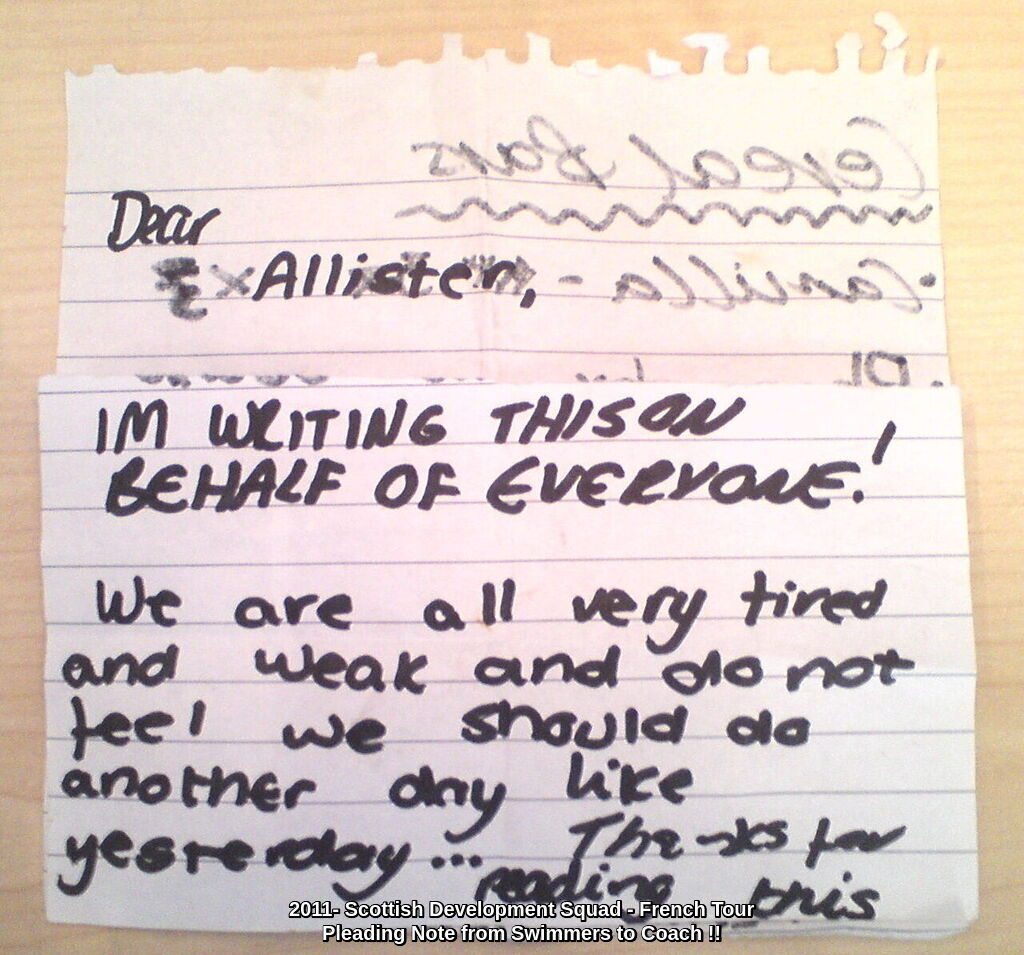 Cereal Bars
Dear
Allister,
· Vanilla -
IM WRITING THIS ON
BEHALF OF EVERYONE!
We are all very tired
and weak and do not
feel we should do
another day like
yesterday... Thanks for
reading this
2011- Scottish Development Squad - French Tour
Pleading Note from Swimmers to Coach !!